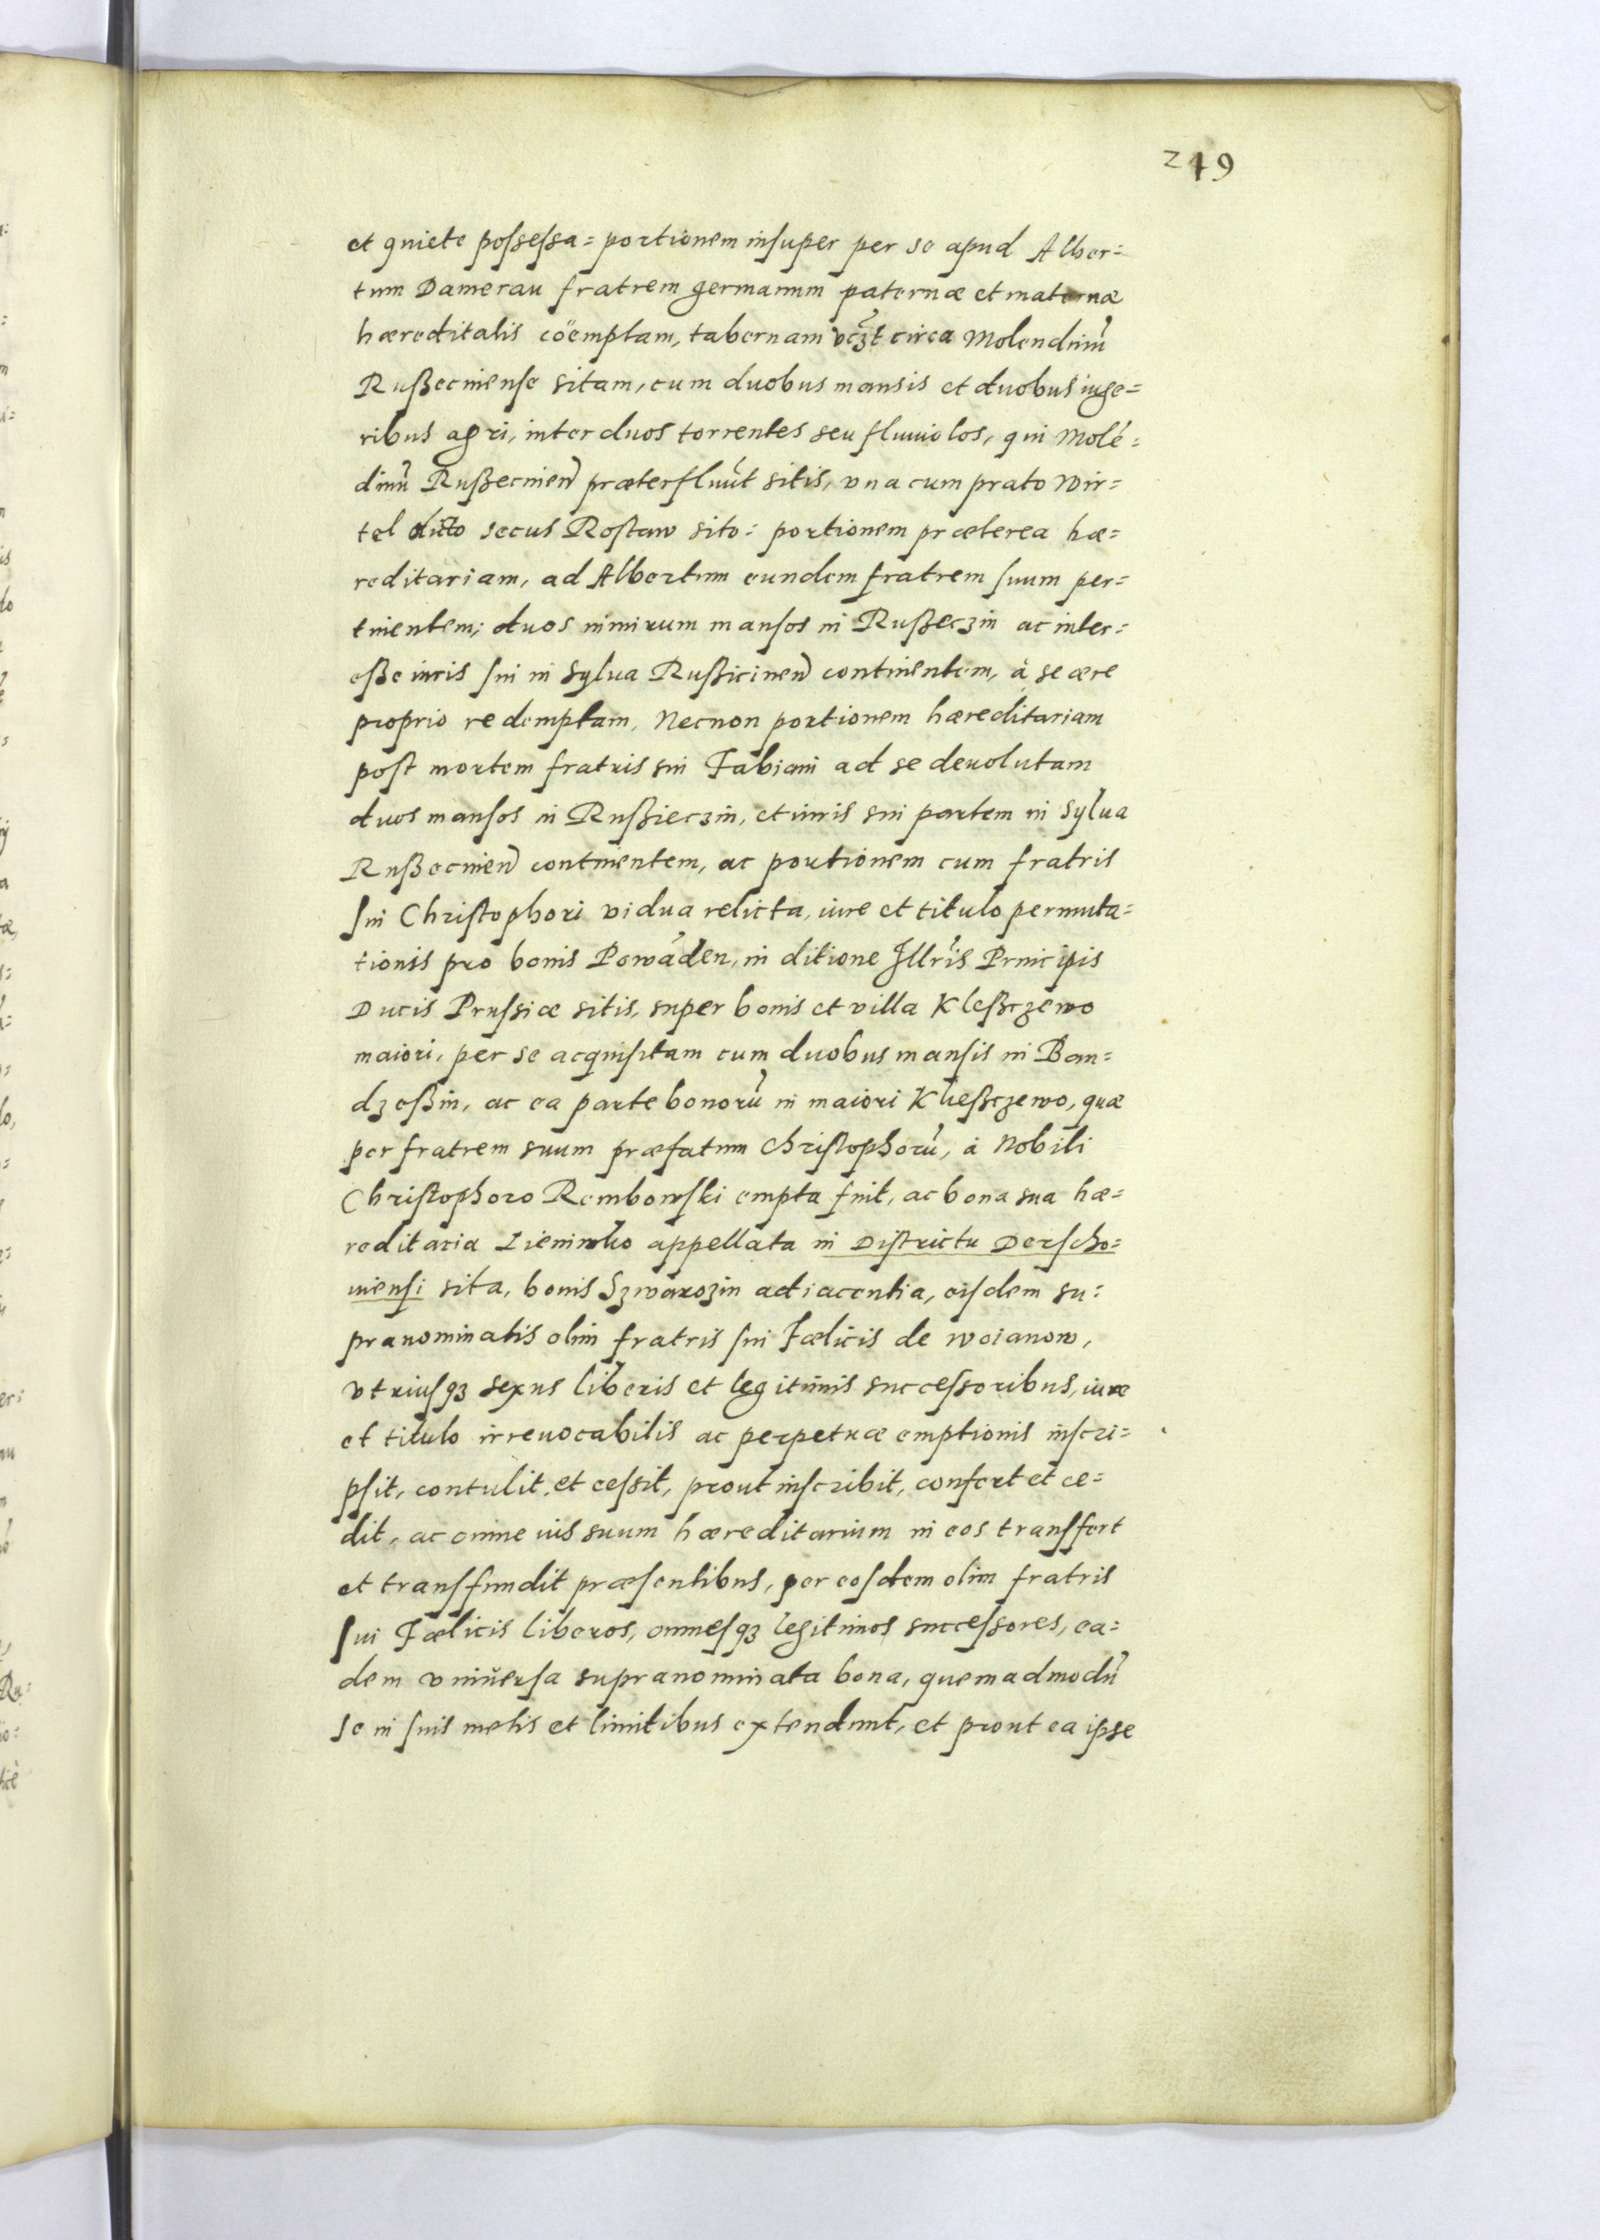 249
et quiete poſseſsa = portionem inſuper per se apud Alber=
tum Damerau fratrem germanum paternæ et maternæ
hæreditatis cöemptam, tabernam vczt circa Molendinū
Rußecinense sitam, cum duobus mansis et duobus iuge=
ribus agri, inter duos torrentes seu fluuiolos, qui Molē=
dinū Rußecinen̄ præterfluūt sitis, vna cum prato Wir=
tel dicto secus Roſtaw sito: portionem præterea hæ=
reditariam, ad Albertum eundem fratrem ſuum per=
tinentem; duos nimirum manſos in Rußeczin ac inter=
eße iuris ſui in Sylua Rußicinen̄ continentem, à se ære
proprio redemptam, Necnon portionem hæreditariam
poſt mortem fratris sui Fabiani ad se deuolutam
duos manſos in Rußieczin, et iuris sui partem in Sylua
Rußecinen̄ continentem, ac portionem cum fratris
ſui Chriſtophori vidua relicta, iure et titulo permuta=
tionis pro bonis Powäden, in ditione Jllr̄is Principis
Ducis Pruſsiæ sitis, super bonis et villa Kleßczewo
maiori, per se acquiſitam cum duobus manſis in Ban=
dzeßin, ac ea parte bonorū in maiori Kleßczewo, quæ
per fratrem suum præfatum Chriſtophorū, à Nobili
Chriſtophoro Rembowſki empta fuit, ac bona sua hæ=
reditaria appellata in Diſtrictu Derſcho=
uienſi sita, bonis Szwarozin adiacentia, eiſdem su=
pranominatis olim fratris ſui Fælicis de Woianow,
vtriuſqꝫ sexus liberis et legitimis succeſsoribus, iure
et titulo irreuocabilis ac perpetuæ emptionis inſcri=
pſit, contulit, et ceſsit, prout inſcribit, confert et ce=
dit, ac omne ius suum hæreditarium in eos tranſfert
et tranſfundit præſentibus, per eoſdem olim fratris
ſui Fælicis liberos, omneſqꝫ legitimos succeſsores, ea=
dem vniuerſa supranominata bona, quemadmodū
se in ſuis metis et limitibus extendunt, et prout ea ipse